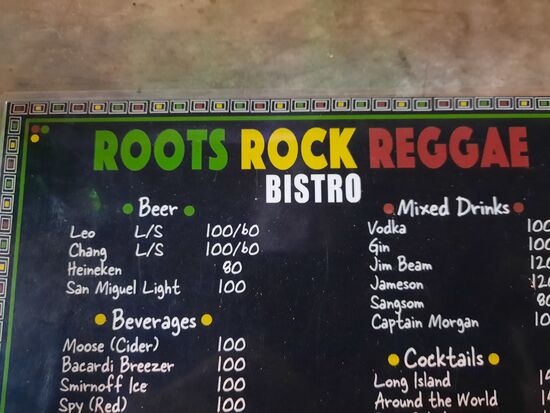 ROOTS ROCK REGGAE
BISTRO
Beer
Leo L/S 100/60
Chang L/S 100/60
Heineken 80
San Miguel Light 100
Beverages
Moose (Cider) 100
Bacardi Breezer 100
Smirnoff Ice 100
Spy (Red) 100
Mixed Drinks
Vodka
Gin
Jim Beam
Jameson
Sangsom
Captain Morgan
Cocktails
Long Island
Around the World